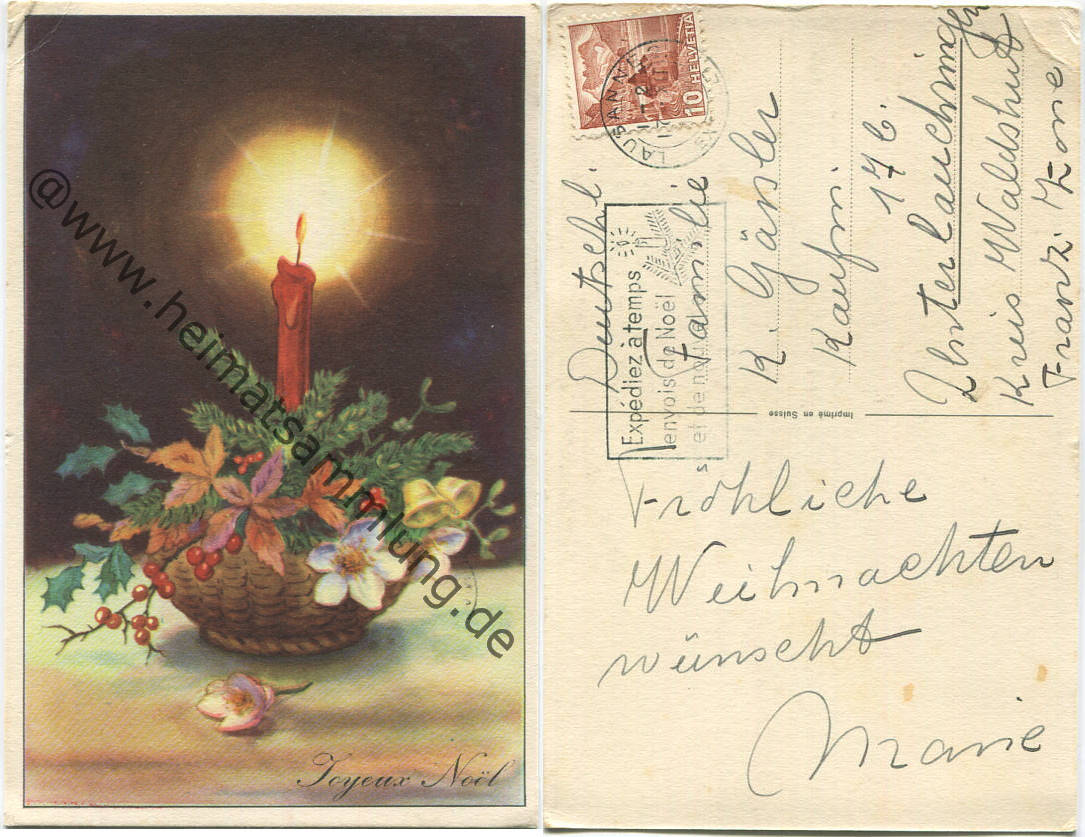 Joyeux Noël
@www.heimatsammlung.de
10 HELVETIA
LAUSANNE
Expédiez à temps
envois de Noël
et de nouvel
Deutschl.
Familie
K. Gänsler
Kaufm.
17 b.
Oberlauchringen
Kreis Waldshut
Franz. Zone
Imprimé en Suisse
Fröhliche
Weihnachten
wünscht
Marie